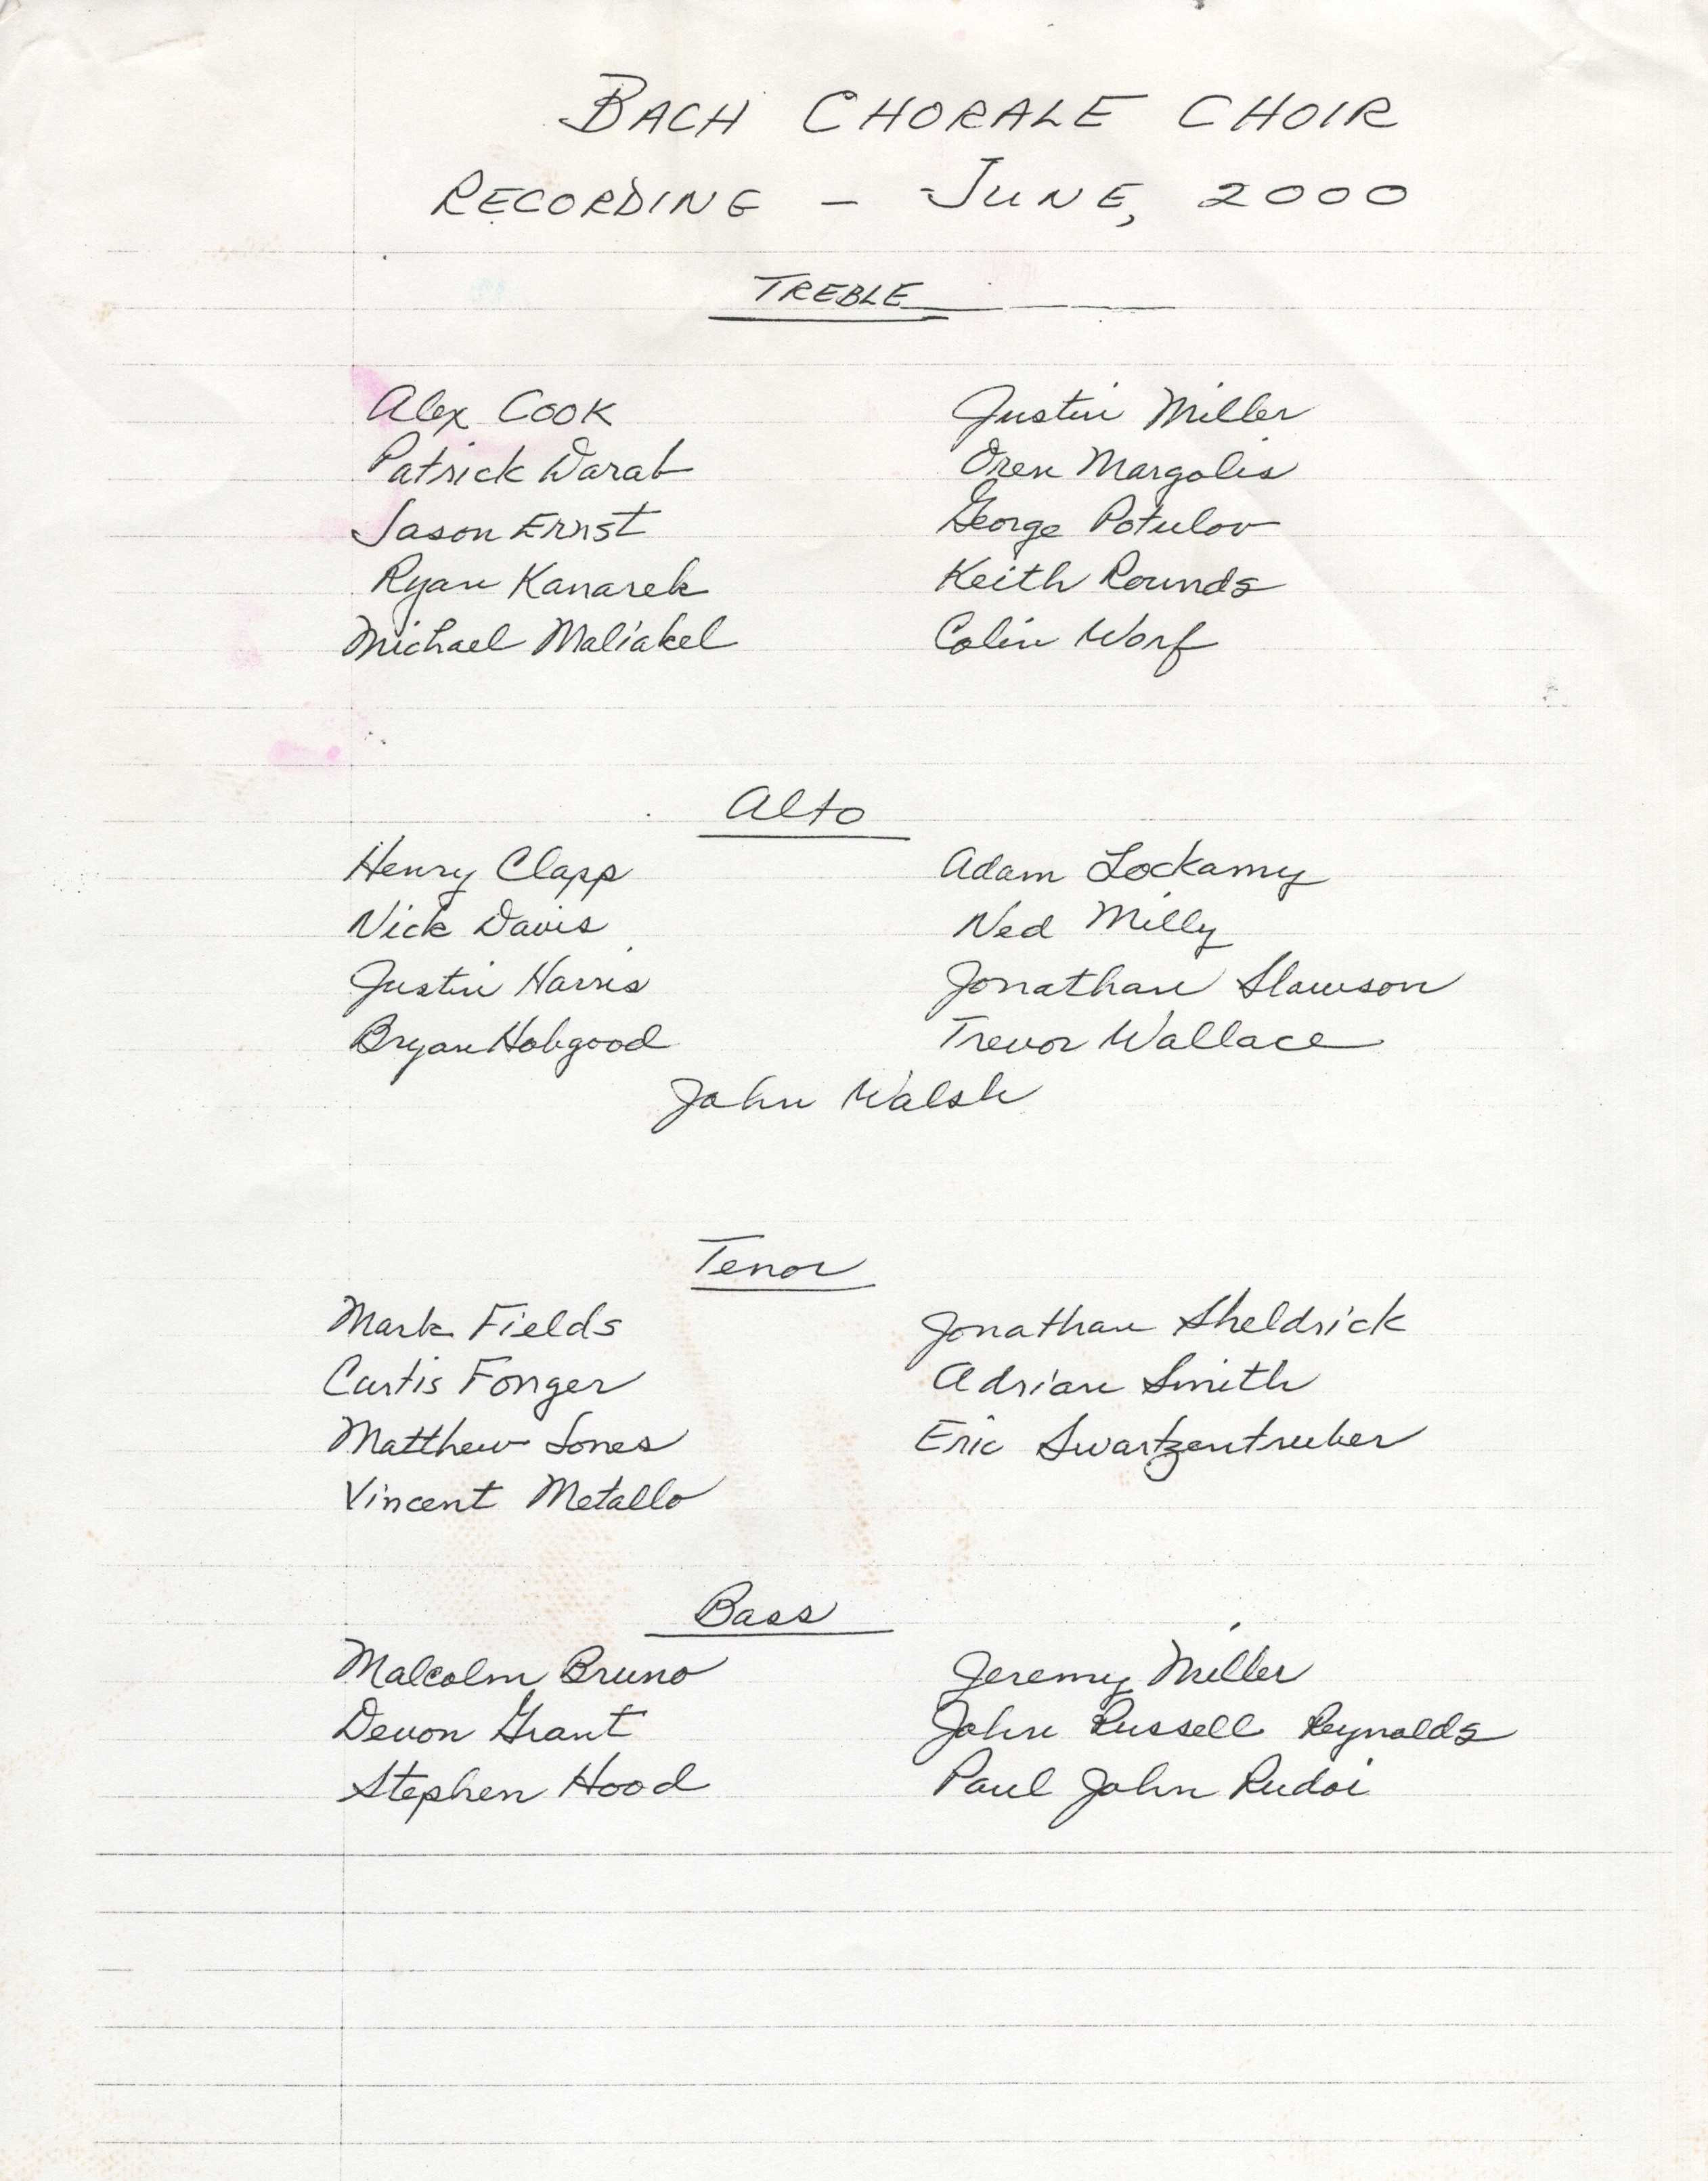 BACH CHORALE CHOIR
RECORDING – JUNE, 2000
TREBLE
Alex Cook Justin Miller
Patrick Darab Oren Margolis
Jason Ernst George Potulov
Ryan Kanarek Keith Rounds
Michael Maliakel Colin Worf
Alto
Henry Clapp Adam Lockamy
Nick Davis Ned Milly
Justin Harris Jonathan Slawson
Bryan Hobgood Trevor Wallace
John Walsh
Tenor
Mark Fields Jonathan Sheldrick
Curtis Fonger Adrian Smith
Matthew Jones Eric Swartzentruber
Vincent Metallo
Bass
Malcolm Bruno Jeremy Miller
Devon Grant John Russell Reynolds
Stephen Hood Paul John Rudoi